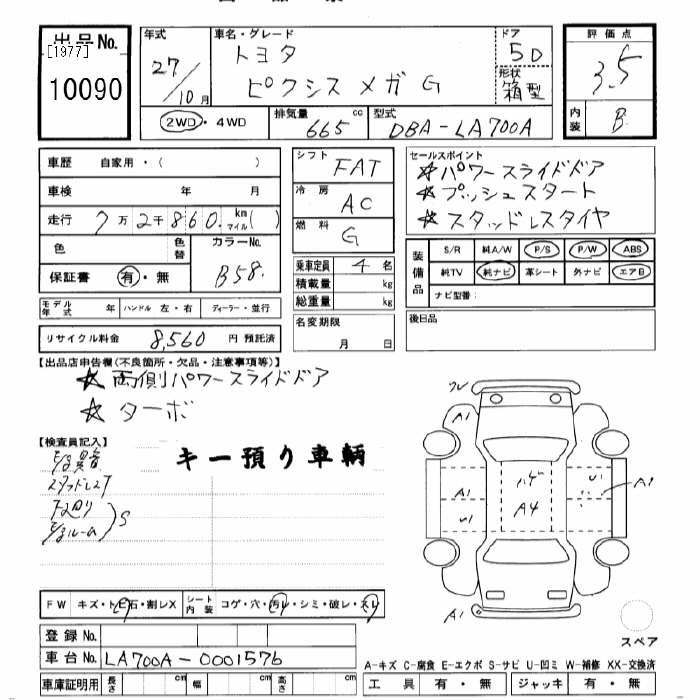 出品No.
[1977]
10090
年式
27/10月
車名・グレード
トヨタ
ピクシス メガ G
ドア
5D
形状
箱型
評価点
3.5
内装
B
2WD・4WD
排気量 665 cc
型式 DBA-LA700A
車歴 自家用・( )
車検 年 月
走行 7万2千860. km マイル( )
色 色替
カラーNo. B58.
保証書 有・無
モデル年式 年 ハンドル 左・右 ディーラー・並行
リサイクル料金 8,560 円 預託済
シフト FAT
冷房 AC
燃料 G
乗車定員 4 名
積載量 kg
総重量 kg
名変期限
月 日
セールスポイント
☆パワースライドドア
☆プッシュスタート
☆スタッドレスタイヤ
装備品
S/R 純A/W P/S P/W ABS
純TV 純ナビ 革シート 外ナビ エアB
ナビ型番:
後日品
【出品店申告欄(不良箇所・欠品・注意事項等)】
☆両側パワースライドドア
☆ターボ
【検査員記入】
キー預り車輌
E/g異音
スタッドレス T
下廻り
E/gルーム
S
FW キズ・トビ石・割レX
シート内装 コゲ・穴・汚レ・シミ・破レ・スレ
登録No.
車台No. LA700A-0001576
車庫証明用 長さ cm 幅 cm 高さ cm
ワレ
A1
A1
U1
ハゲ
A4
U1
A1
A1
スペア
A-キズ C-腐食 E-エクボ S-サビ U-凹ミ W-補修 XX-交換済
工具 有・無 ジャッキ 有・無